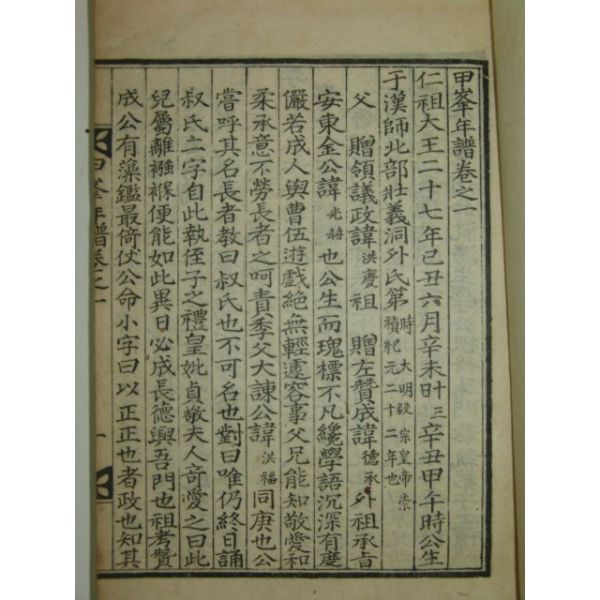 甲峯年譜卷之一
仁祖大王二十七年己丑六月辛未卄三辛丑甲午時公生
于漢師北部壯義洞外氏第時大明毅宗皇帝崇禎紀元二十二年也
父 贈領議政諱洪慶祖 贈左贊成諱德承外祖承旨
安東金公諱光赫也公生而瑰標不凡纔學語沉深有度
儼若成人與曹伍遊戲絶無輕遽容事父兄能知敬愛和
柔承意不勞長者之呵責季父大諫公諱洪福同庚也公
嘗呼其名長者敎曰叔氏也不可名也對曰唯仍終日誦
叔氏二字自此執侄子之禮皇妣貞敬夫人奇愛之曰此
兒屬離襁褓便能如此異日必成長德興吾門也祖考贊
成公有藻鑑最倚仗公命小字曰以正正也者政也知其
甲峯年譜卷之一
一